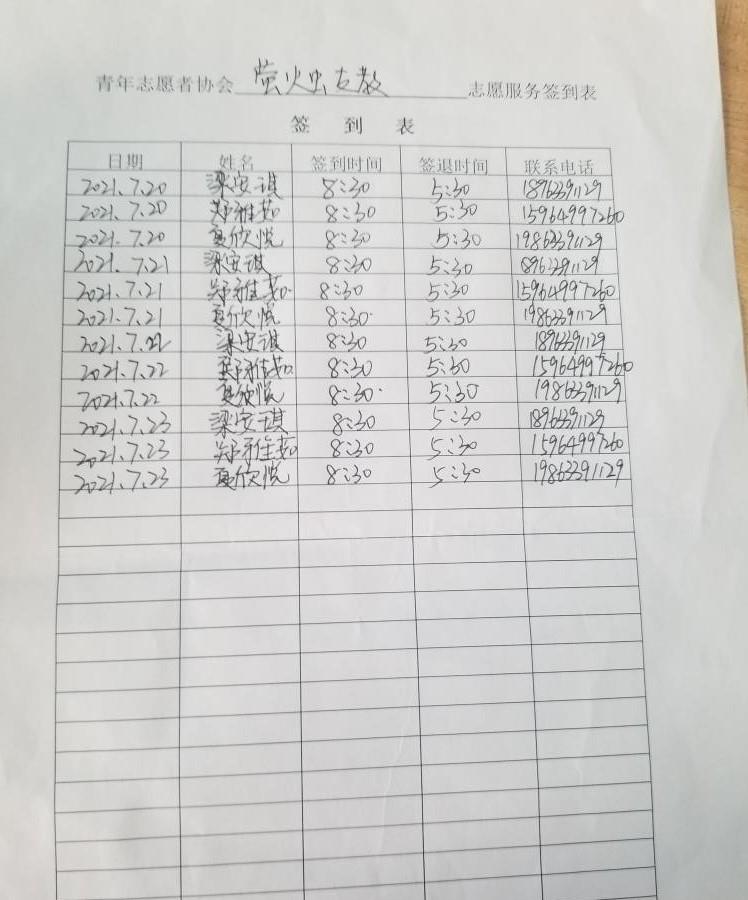 青年志愿者协会 萤火虫支教 志愿服务签到表
签 到 表
日期 姓名 签到时间 签退时间 联系电话
2021.7.20 梁安琪 8:30 5:30 18963391129
2021.7.20 郑雅茹 8:30 5:30 15964997260
2021.7.20 夏欣悦 8:30 5:30 19863391129
2021.7.21 梁安琪 8:30 5:30 18963391129
2021.7.21 郑雅茹 8:30 5:30 15964997260
2021.7.21 夏欣悦 8:30 5:30 19863391129
2021.7.22 梁安琪 8:30 5:30 18963391129
2021.7.22 郑雅茹 8:30 5:30 15964997260
2021.7.22 夏欣悦 8:30 5:30 19863391129
2021.7.23 梁安琪 8:30 5:30 18963391129
2021.7.23 郑雅茹 8:30 5:30 15964997260
2021.7.23 夏欣悦 8:30 5:30 19863391129